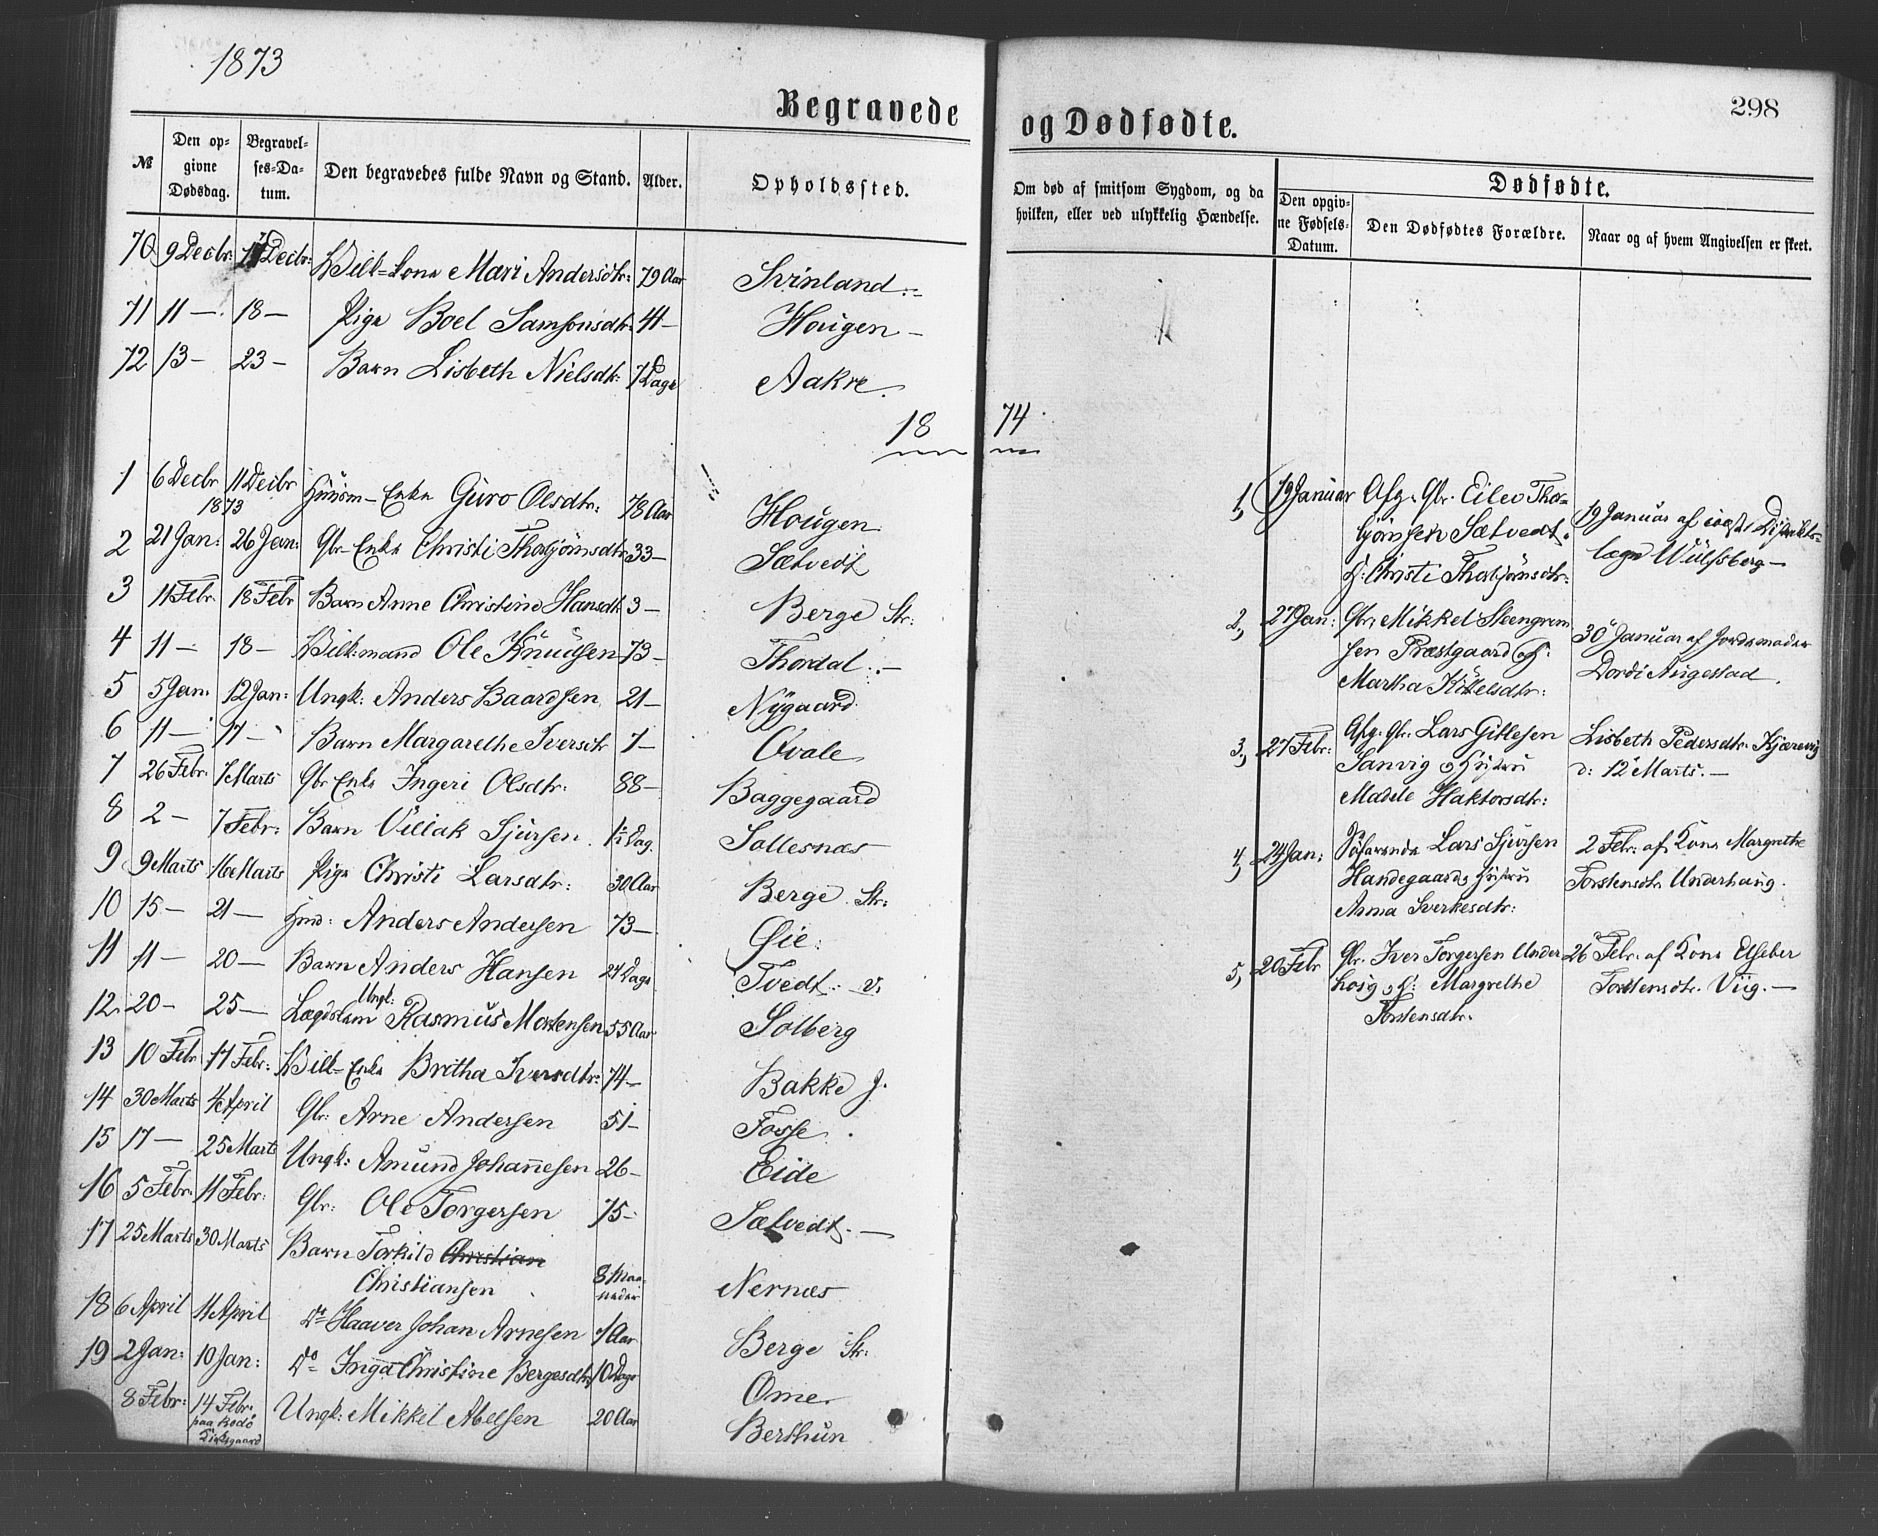 1873
Begravede
og Dødfødte.
298
№
Den opgivne Dødsdag.
Begravelses-Datum.
Den begravedes fulde Navn og Stand.
Alder.
Opholdssted.
Om død af smitsom Sygdom, og da hvilken, eller ved ulykkelig Hændelse.
Dødfødte.
Den opgivne Fødsels-Datum.
Den Dødfødtes Forældre.
Naar og af hvem Angivelsen er skeet.
70 9 Decbr: Decbr: Kone Mari Andersdtr: 79 Aar Svinland
71 11 — 18 — Pige Boel Samsonsdtr 41 — Hougen —
72 13 — 23 — Barn Lisbeth Nielsdtr: 7 Dage Aakre.
18 74
1 6 Decbr 1873 11 Decbr Enke Guro Olsdtr: 78 Aar Hougen
2 21 Jan: 26 Jan: Gbr Enke Christi Thorbjørnsdtr 33 — Sætvedt
3 11 Febr 18 Febr Barn Anne Christine Hansdtr 3 — Berge Str:
4 11 — 18 — Ole Knudsen 73 — Thordal. —
5 5 Jan: 12 Jan: Ungk: Anders Baardsen 21 — Nygaard
6 11 — 17 — Barn Margarethe Iversdtr 7 — Qvale
7 26 Febr: 7 Marts Gbr Enke Ingeri Olsdtr: 88 — Baggegaard
8 2 — 7 Febr: Barn Villak Sjursen 1½ Dag. Sollesnæs
9 9 Marts 16 Marts Pige Christi Larsdtr: 30 Aar Berge Str:
10 15 — 21 — Anders Andersen 73 — Øie:
11 11 — 20 — Barn Anders Hansen 21 Dage Tvedt. v.
12. 20 — 25 — Ungk: Lægdslem Rasmus Mortensen 55 Aar Solberg
13 10 Febr 17 Febr: Enke Britha Iversdtr: 74 — Bakke J.
14 30 Marts 4 April Gbr: Arne Andersen 51 — Fosse.
15 17 — 25 Marts Ungk: Amund Johannesen 26 — Eide
16 5 Febr: 11 Febr: Gbr: Ole Torgersen 75 — Sætvedt. —
17 25 Marts 30 Marts Barn Torkild Christian
Christiansen 8 Maaneder Nernæs
18 6 April 11 April Do Haaver Johan Arnesen Aar Berge Str:
19 2 Jan: 10 Jan: Do Inga Christine Bergesdtr 10 Dage Ome
8 Febr: 14 Febr. paa Bodø Kirkegaard Ungk: Mikkel Abelsen 20 Aar Berthun
1, 19 Januar Afg. Gbr. Eilev Thorbjørnsen Sætvedt. H: Christi Thorbjørnsdtr: 19 Januar af Distriktslæge Wulfsberg —
2, 27 Jan: Gbr: Mikkel Steengrimsen Præstgaard og H: Martha Ketelsdtr: 30 Januar af Jordemoder Dordi Augestad.
3, 27 Febr: Afg. Gbr. Lars Gitlesen Sanvig og Hustru Madele Haktorsdtr: Lisbeth Pedersdtr: Kjærevig d: 12 Marts. —
4, 24 Jan: Søfarende Lars Sjursen Handegaard og Hustru Anna Sverkesdtr: 2 Febr: af Kone Margrethe Torstensdtr Underhaug.
5, 20 Febr Gbr. Iver Torgersen Underhoug og H: Margrethe Torstensdtr. 26 Febr. af Kone Elseber Torstensdtr. Viig. —